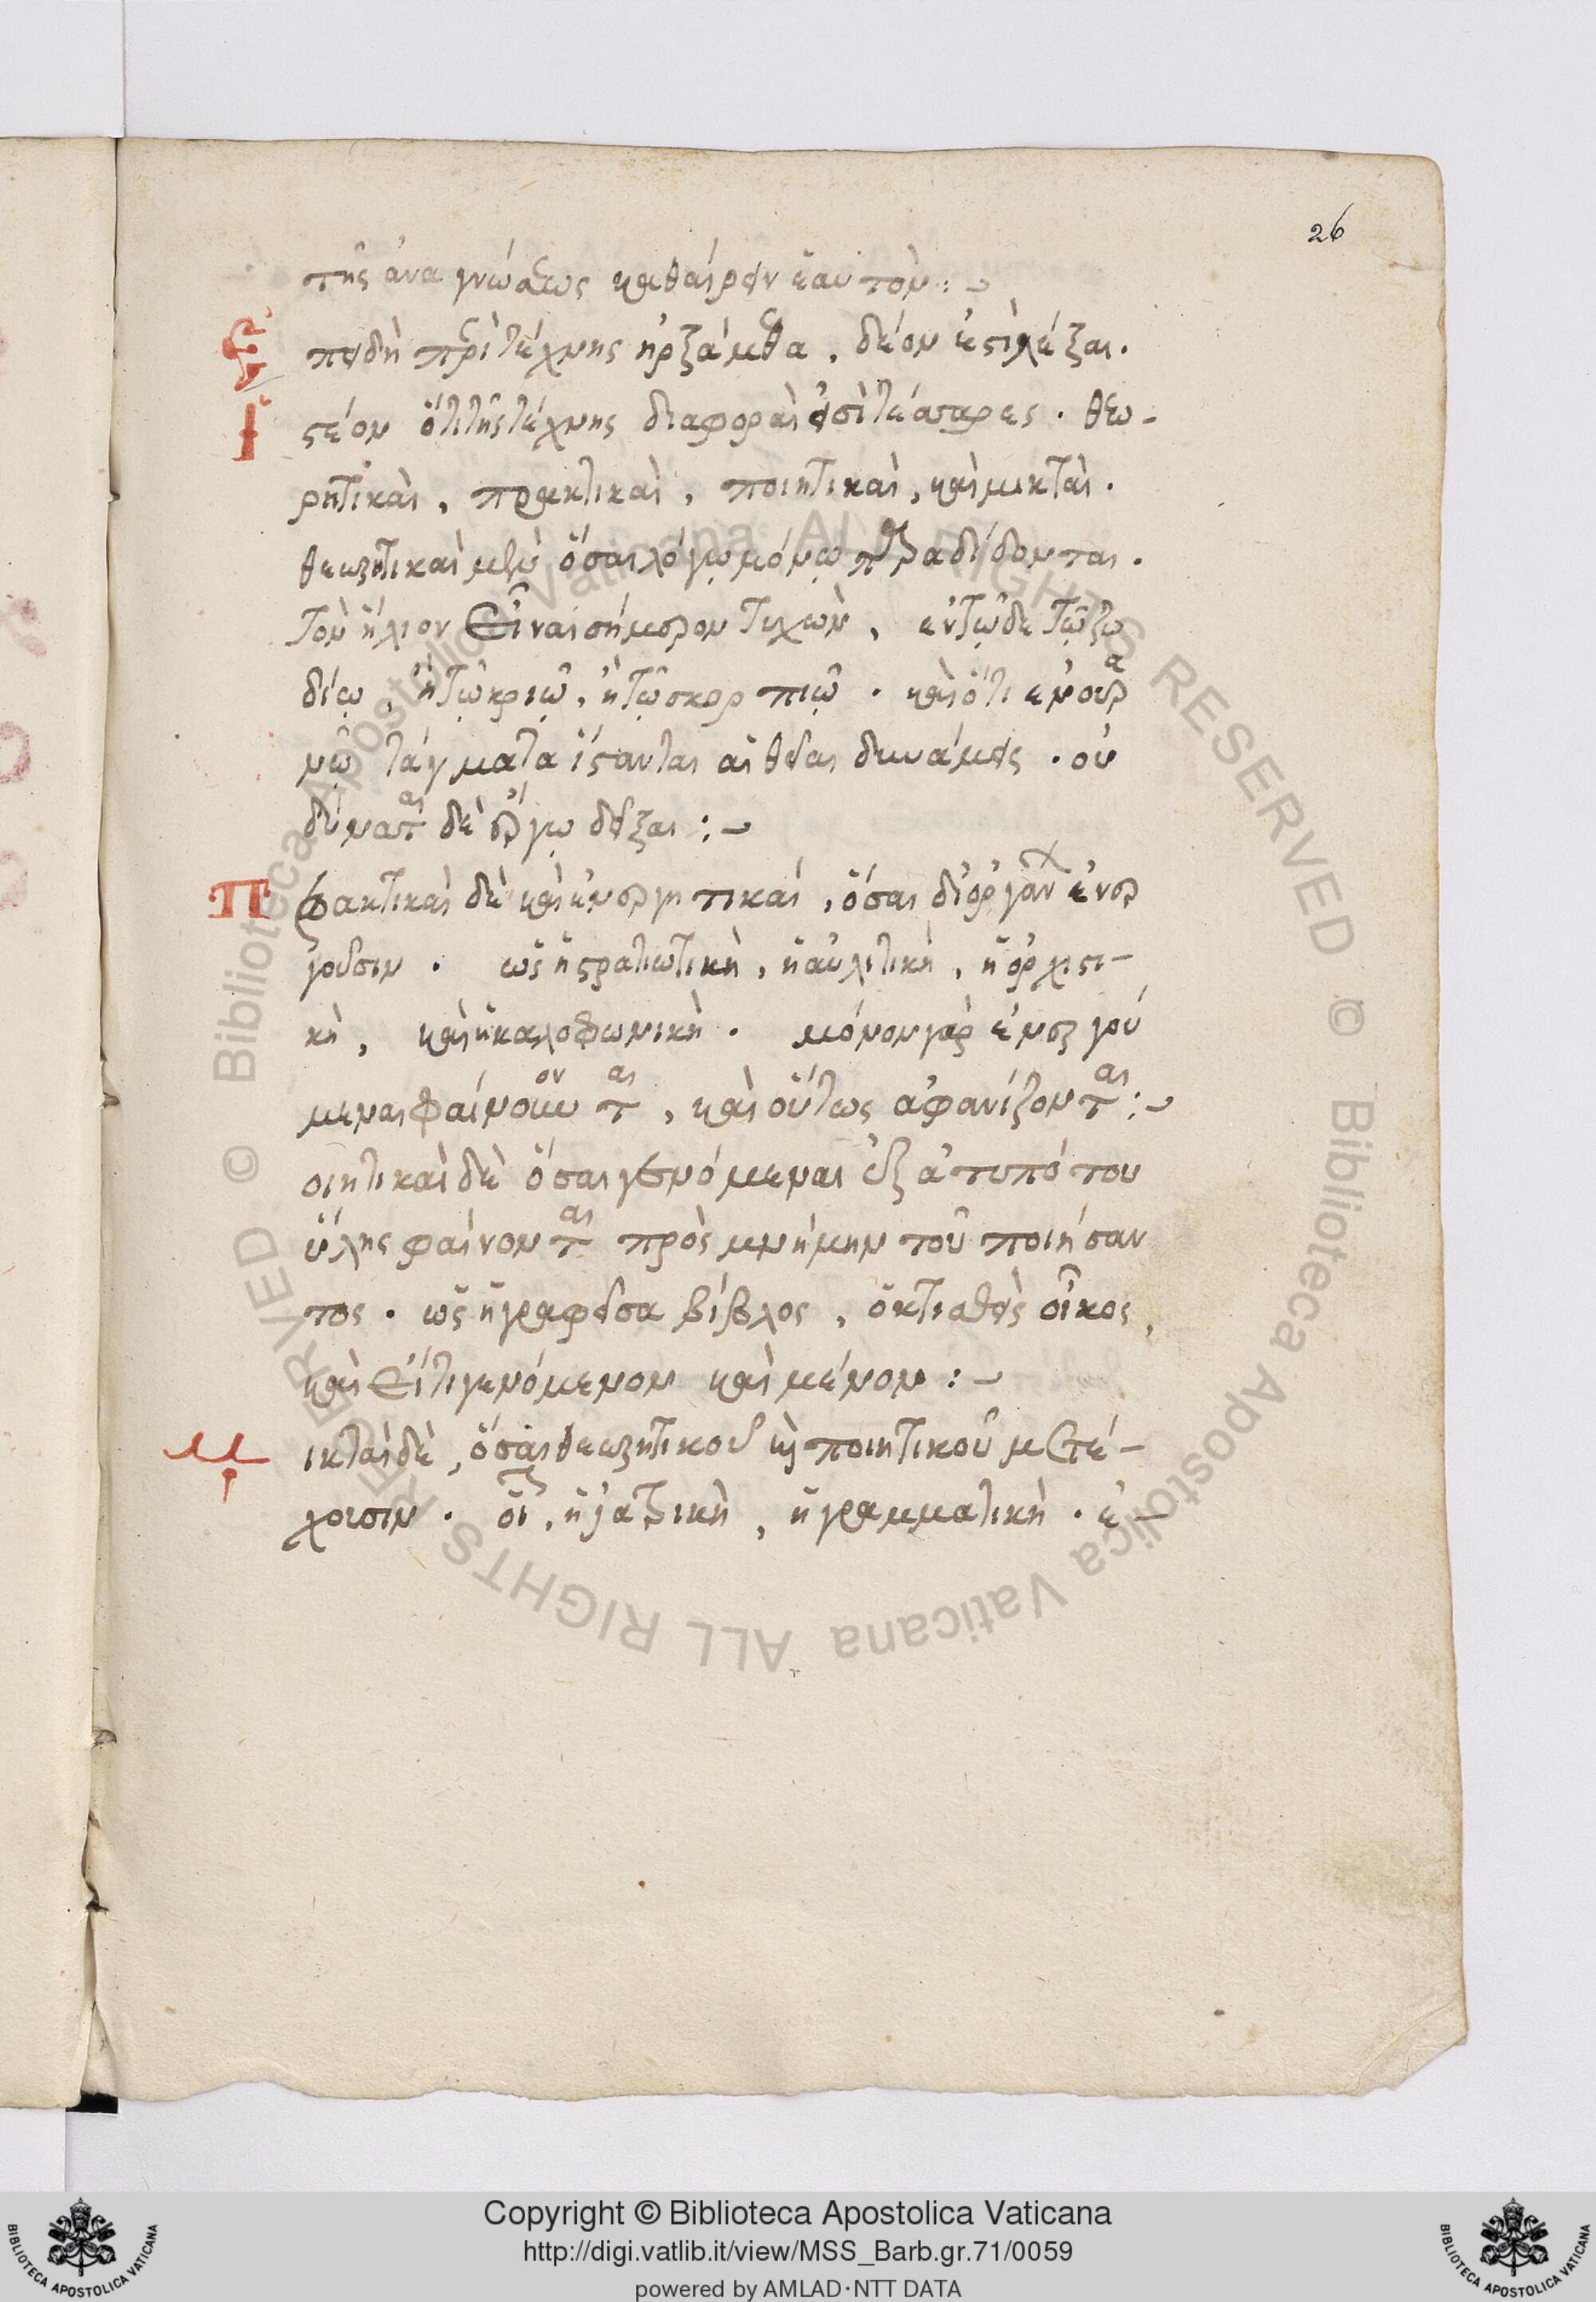 26
της ἀναγνώσεως καθαίρειν ἑαυτόν :~
Ἐπειδὴ περὶ τέχνης ἠρξάμεθα, δέον ἐστὶ λέξαι.
Ἰστέον ὅτι τῆς τέχνης διαφοραὶ εἰσὶ τέσσαρες. θεω-
ρητικαὶ, πρακτικαὶ, ποιητικαὶ, καὶ μικταὶ.
θεωρητικαὶ μὲν ὅσαι λόγῳ μόνῳ παραδίδονται.
τὸν ἥλιον εἶναι σήμερον τυχὼν, ἐν τῷδε τῷ ζω
δίῳ, ἢ τῷ κριῷ, ἢ τῷ σκορπιῷ. καὶ ὅτι ἐν οὐρα
νῷ τάγματα ἵστανται αἱ θεῖαι δυνάμεις. οὐ
δύναται δὲ ἔργῳ δεῖξαι :~
Πρακτικαὶ δὲ καὶ ἐνεργητικαὶ, ὅσαι δι' ὀργάνων ἐνερ
γοῦσιν. ὡς ἡ στρατιωτικὴ, ἡ αὐλιτικὴ, ἡ ὀρχιστι-
κὴ, καὶ ἡ καλοφωνικὴ. μόνον γὰρ ἐνεργού
μεναι φαίνονται, καὶ οὕτως ἀφανίζονται :~
οιητικαὶ δὲ ὅσαι γενόμεναι ἐξ ἀτυπότου
ὕλης φαίνονται πρὸς μνήμην τοῦ ποιήσαν
τος. ὡς ἡ γραφεῖσα βίβλος, ὁ κτισθεὶς οἶκος,
καὶ εἴ τι γενόμενον καὶ μένον :~
Μικταὶ δὲ, ὅσαι θεωρητικοῦ καὶ ποιητικοῦ μετέ-
χουσιν. οἷον, ἡ ἰατρικὴ, ἡ γραμματικὴ. ἐ-
Copyright © Biblioteca Apostolica Vaticana
http://digi.vatlib.it/view/MSS_Barb.gr.71/0059
powered by AMLAD·NTT DATA
BIBLIOTECA APOSTOLICA VATICANA
BIBLIOTECA APOSTOLICA VATICANA
© Biblioteca Apostolica Vaticana ALL RIGHTS RESERVED © Biblioteca Apostolica Vaticana ALL RIGHTS RESERVED